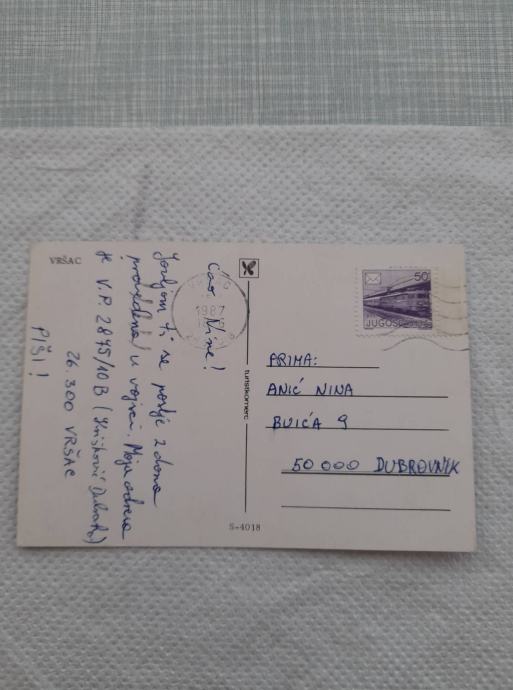 VRŠAC
Ćao Nine!
Javljam ti se poslje 2 dana
provedena u vojni. Moja adresa
je V.P. 2845/10B
26 300 VRŠAC
PIŠI!
1987
turistkomerc
S-4018
50
JUGOSLAVIJA
PRIMA:
ANIĆ NINA
BUIĆA 9
50 000 DUBROVNIK